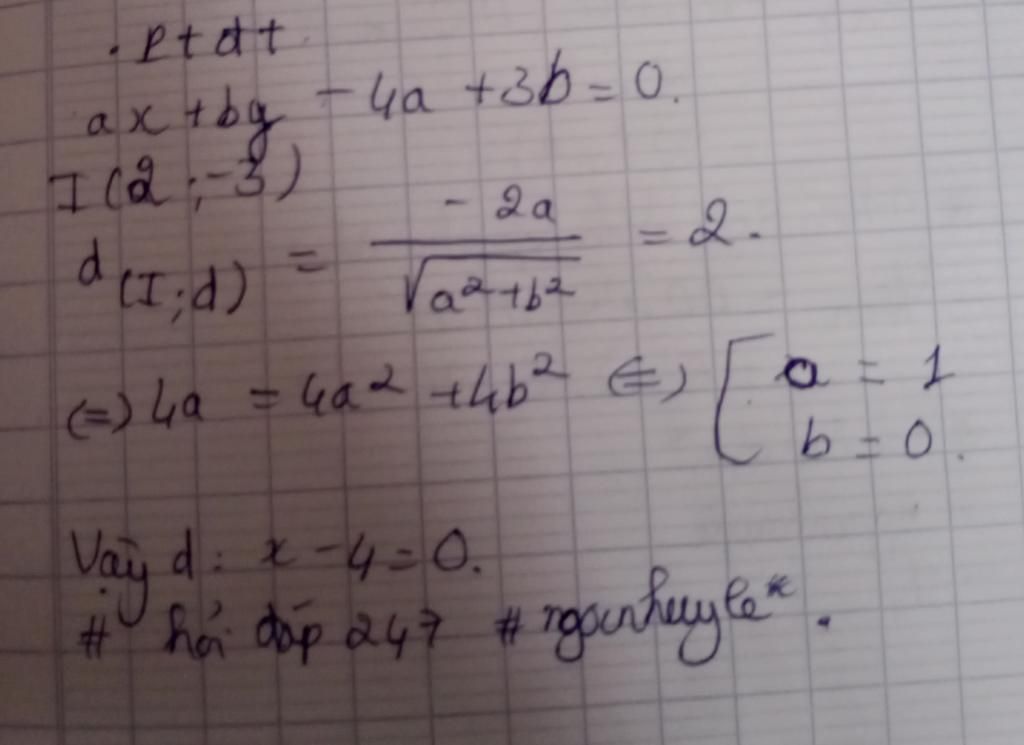 . ptdt
ax + by - 4a + 3b = 0.
I(2 ; -3)
d(I;d) = - 2a / √(a² + b²) = 2.
(=) 4a = 4a² + 4b² (=) [ a = 1
b = 0.
Vậy d : x - 4 = 0.
# hỏi đáp 247 # nganhuyle* .